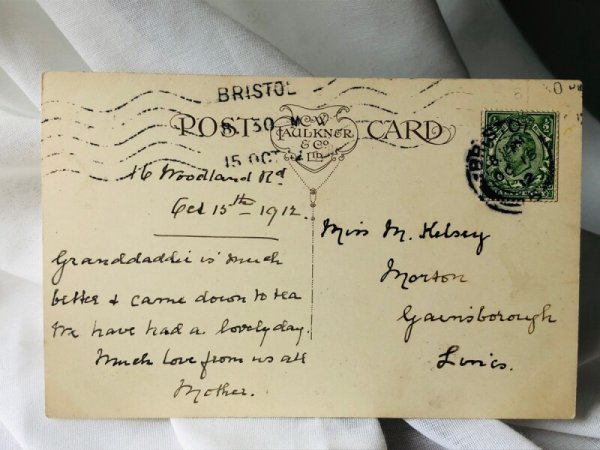 BRISTOL
30
15 OCT
POST CARD
C. W. FAULKNER & CO LTD.
BRISTOL
16 Woodland Rd
Oct 15th 1912.
Granddaddie is much
better & came down to tea
We have had a lovely day.
Much love from us all
Mother.
Miss M. Kelsey
Morton
Gainsborough
Lincs.